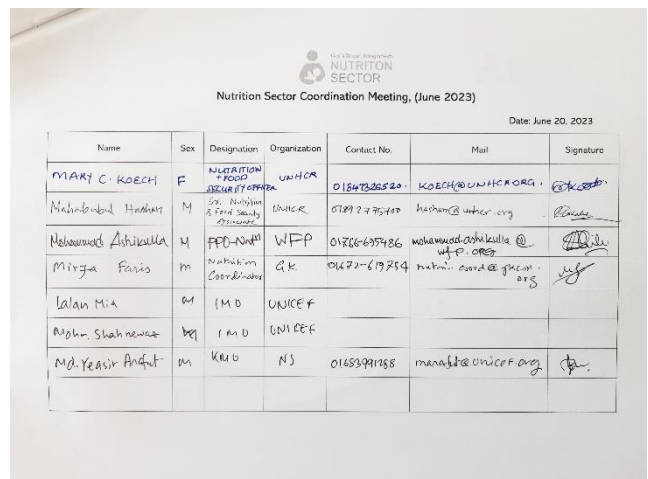 Cox's Bazar, Bangladesh
NUTRITON
SECTOR
Nutrition Sector Coordination Meeting, (June 2023)
Date: June 20, 2023
Name Sex Designation Organization Contact No. Mail Signature
MARY C. KOECH F NUTRITION + FOOD SECURITY OFFICER UNHCR 01847326520. KOECH@UNHCR.ORG.
Mahabubul Hashan M Sr. Nutrition & Food Security Associate UNHCR hashan@unhcr.org
Mohammad Ashikulla M WFP 01766-695486 mohammad.ashikulla@wfp.org
Mirza Faris m Nutrition Coordinator GK 01672-619754
Lalan Mia m IMO UNICEF
Mohm. Shahnewaz IMO UNICEF
Md. Yeasir Arafat m KMO NS 01683991288 marafat@unicef.org